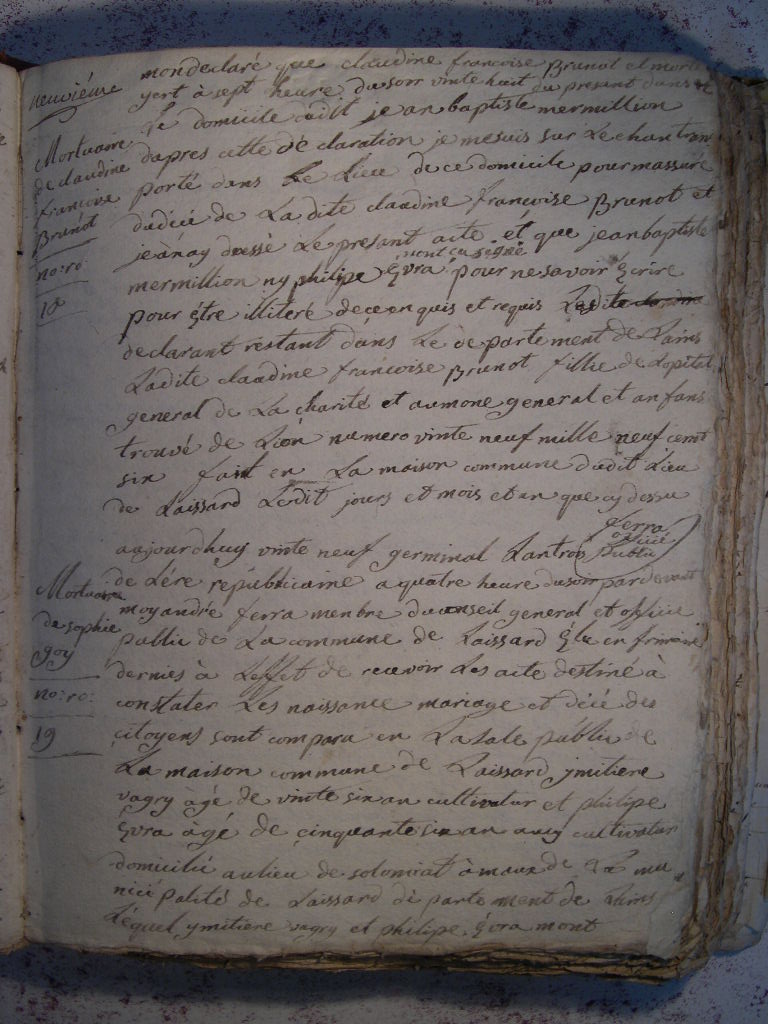 neuviéme
Mortuaire
de claudine
francoise
Brunot
no: ro:
18
mon declaré que claudine francoise Brunot et morte
yert à sept heure du soir vinte huit du presant dans
Le domicile dudit jean baptiste mermillion
dapres cette dé claration je me suis sur Le chan tran
porté dans Le Lieu de ce domicile pour massuré
du décé de La dite claudine francoise Brunot et
jeànay dressé Le presant acte et que jean baptiste
mermillion ny philipe Evra mont ceu signé pour ne savoir Ecrire
pour Etre illiteré de ce enquis et requis Ladite
declarant restant dans Le de parte ment de Lains
Ladite claudine francoise Brunot fillie de Lopital
general de La charité et aumone general et an fans
trouvé de Lion numero vinte neuf mille neuf cent
six fait en La maison commune dudit Lieu
de Laissard Ledit jours et mois et an que cy dessu
ferra
officié
publi
Mortuaire
de sophie
goy
no: ro:
19
aujourdhuy vinte neuf germinal Lantrois
de Lére républicaine a quatre heure du soir pardevant
moy andré ferra menbre du conseil general et officié
public de La commune de Laissard Elu en frimaire
dernies à Leffet de recevoir Les acte destiné à
constater Les naissance mariage et décé des
citoyens sont comparu en La sale public de
La maison commune de Laissard ymitiere
vagry àgé de vinte six an cultivatur et philipe
Evra àgé de cinquante six an aussy cultivatur
domicilié au lieu de solomiat à maux de La mu
nici palité de Laissard dé parte ment de Lains
Lequel ymitiere vagry et philipe Evra mont